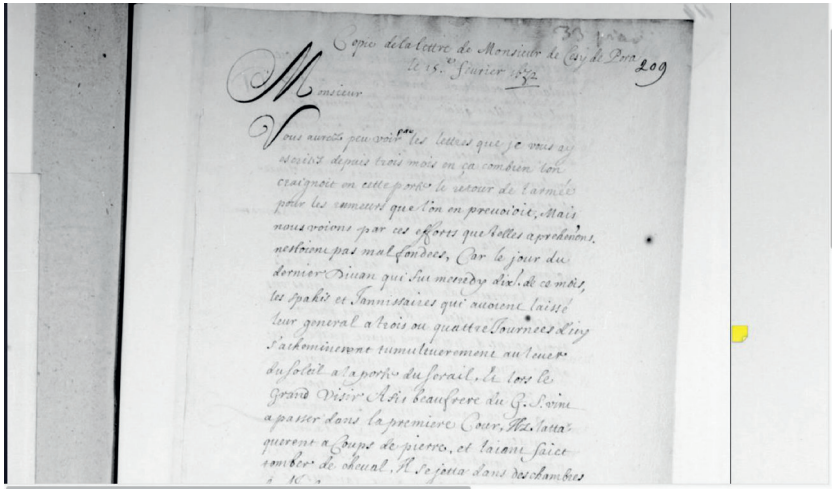 33 pieces
Copie de la lettre de Monsieur de Cesy de Pera
le 15.e feurier 1632
209
Monsieur
Vous aurez peu voir par les lettres que je vous ay
escrites depuis trois mois en ça combien l'on
craignoit en cette porte le retour de l'armée
pour les rumeurs que l'on en prevoioit, Mais
nous voions par ces efforts que telles aprehentions.
nestoient pas mal fondees, Car le jour du
dernier Divan qui fut mecredy dix.e de ce mois,
les spahis et Jannissaires qui avoient laissé
leur general a trois ou quattre Journees d'icy
s'acheminerent tumultuerement au lever
du soleil a la porte du serail, Et lors le
grand Visir Asis beaufrere du G. S. vint
a passer dans la premiere Cour, Ilz latta-
querent a Coups de pierre, et laiant faict
tomber de cheval, Il se jetta dans des chambres